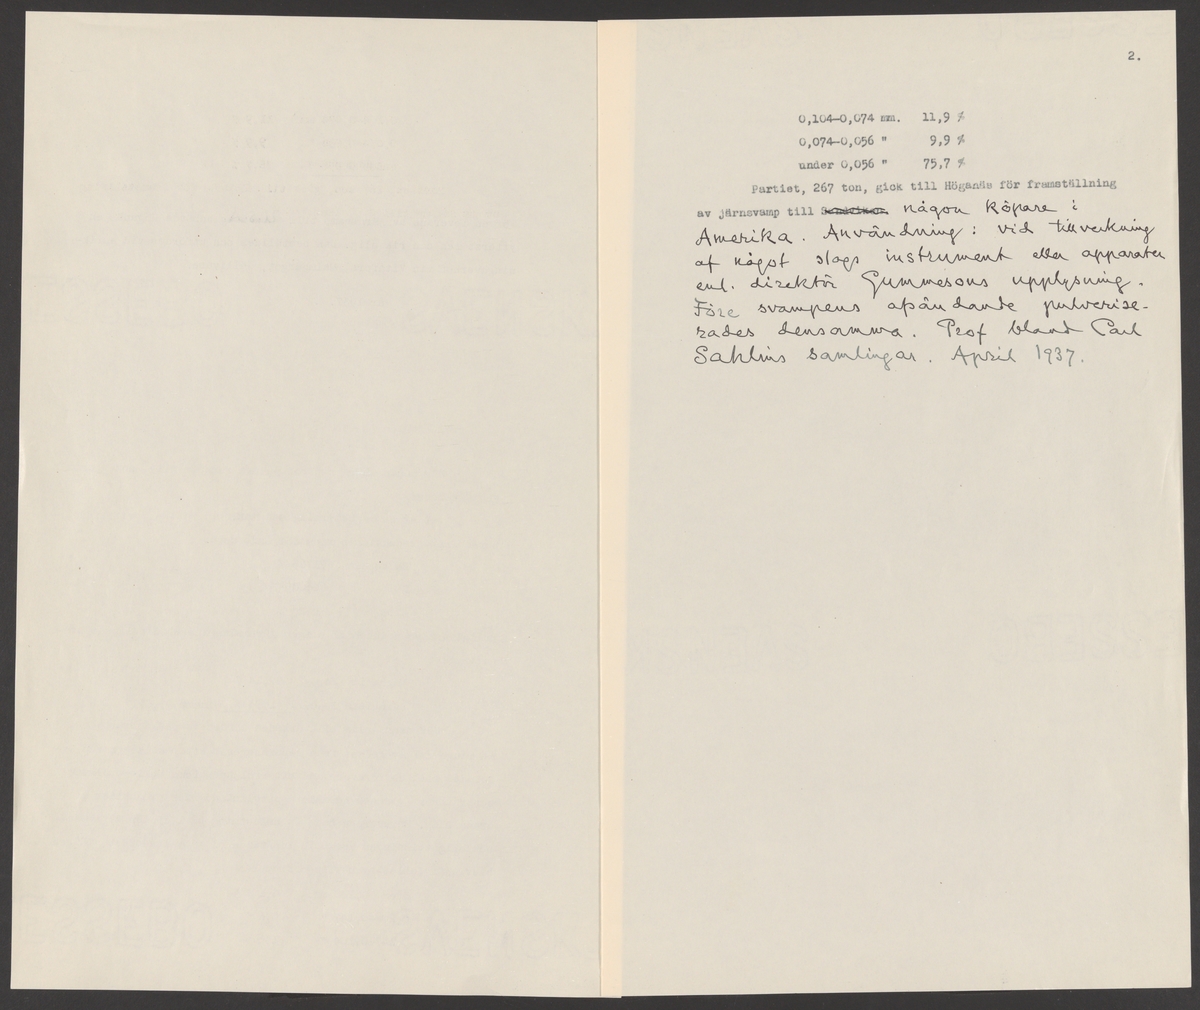 2.
0,104-0,074 mm. 11,9 %
0,074-0,056 " 9,9 %
under 0,056 " 75,7 %
Partiet, 267 ton, gick till Höganäs för framställning
av järnsvamp till någon köpare i
Amerika. Användning: vid tillverkning
af något slags instrument eller apparater
enl. direktör Gummesons upplysning.
Före svampens afsändande pulverise-
rades densamma. Prof bland Carl
Sahlins samlingar. April 1937.